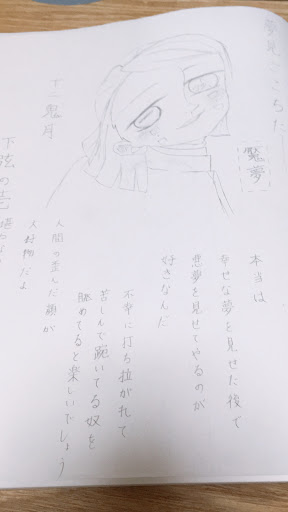 夢見ごこちだ
魘夢
十二鬼月
下弦の壱
本当は
幸せな夢を見せた後で
悪夢を見せてやるのが
好きなんだ
不幸に打ち拉がれて
苦しんで踠いてる奴を
眺めてると楽しいでしょう
人間の歪んだ顔が
大好物だよ
堪らない